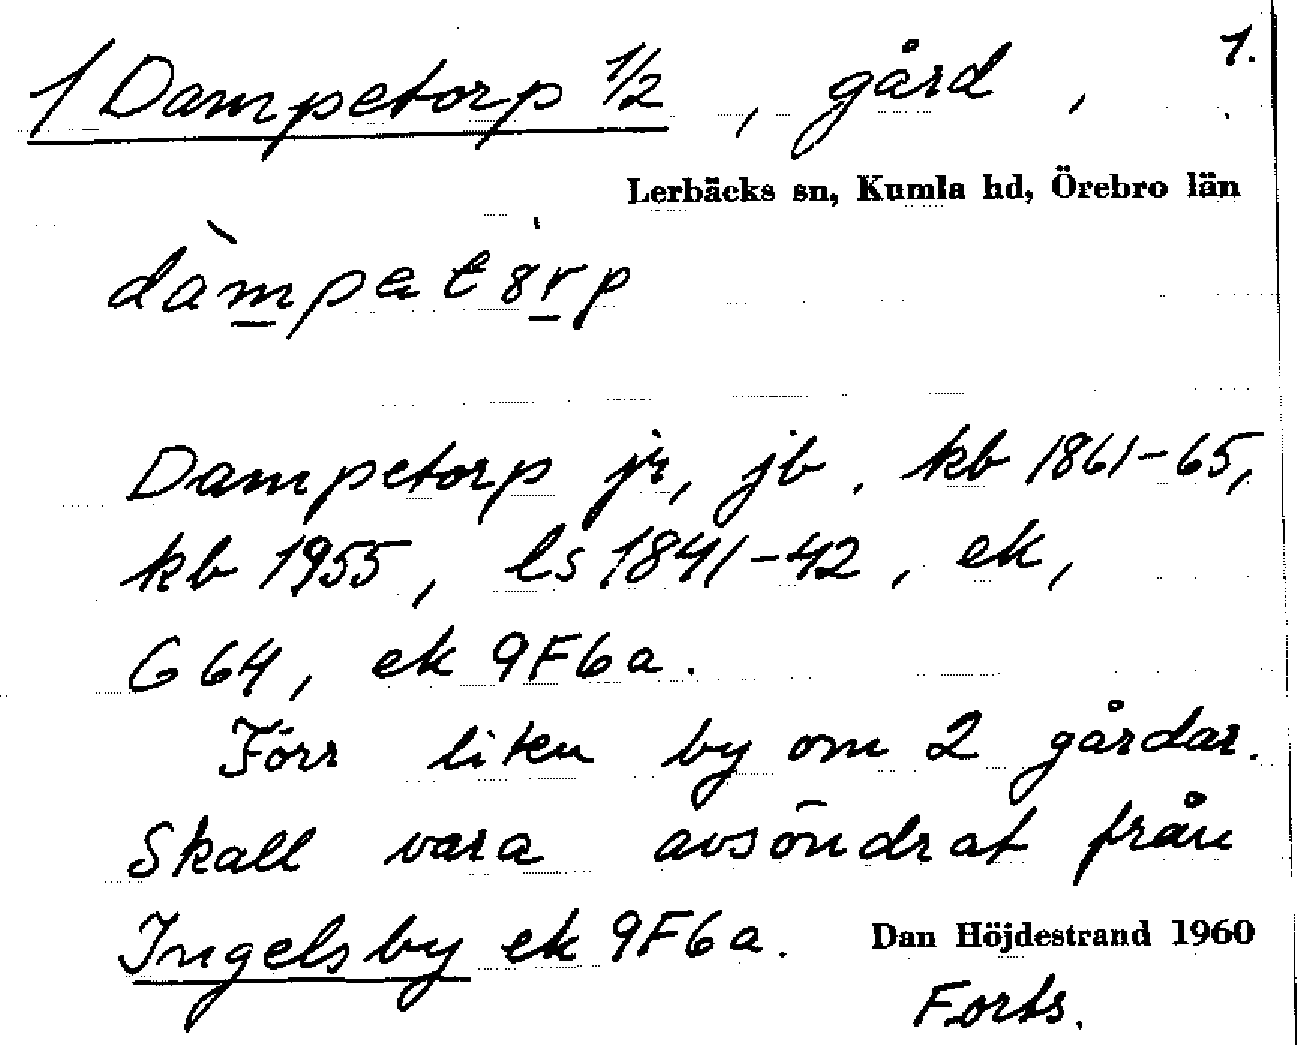 1.
1/ Dampetorp 1/2, gård,
Lerbäcks sn, Kumla hd, Örebro län
Dampetorp jr, jb, kb 1861-65,
kb 1955, ls 1841-42, ek,
G 64, ek 9F6a.
Förr liten by om 2 gårdar.
Skall vara avsöndrat från
Ingelsby ek 9F6a.
Dan Höjdestrand 1960
Forts.